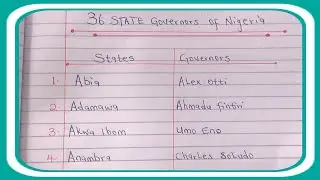 36 STATE Governors of Nigeria
States Governors
1. Abia Alex Otti
2. Adamawa Ahmadu fintiri
3. Akwa Ibom Umo Eno
4. Anambra Charles Soludo